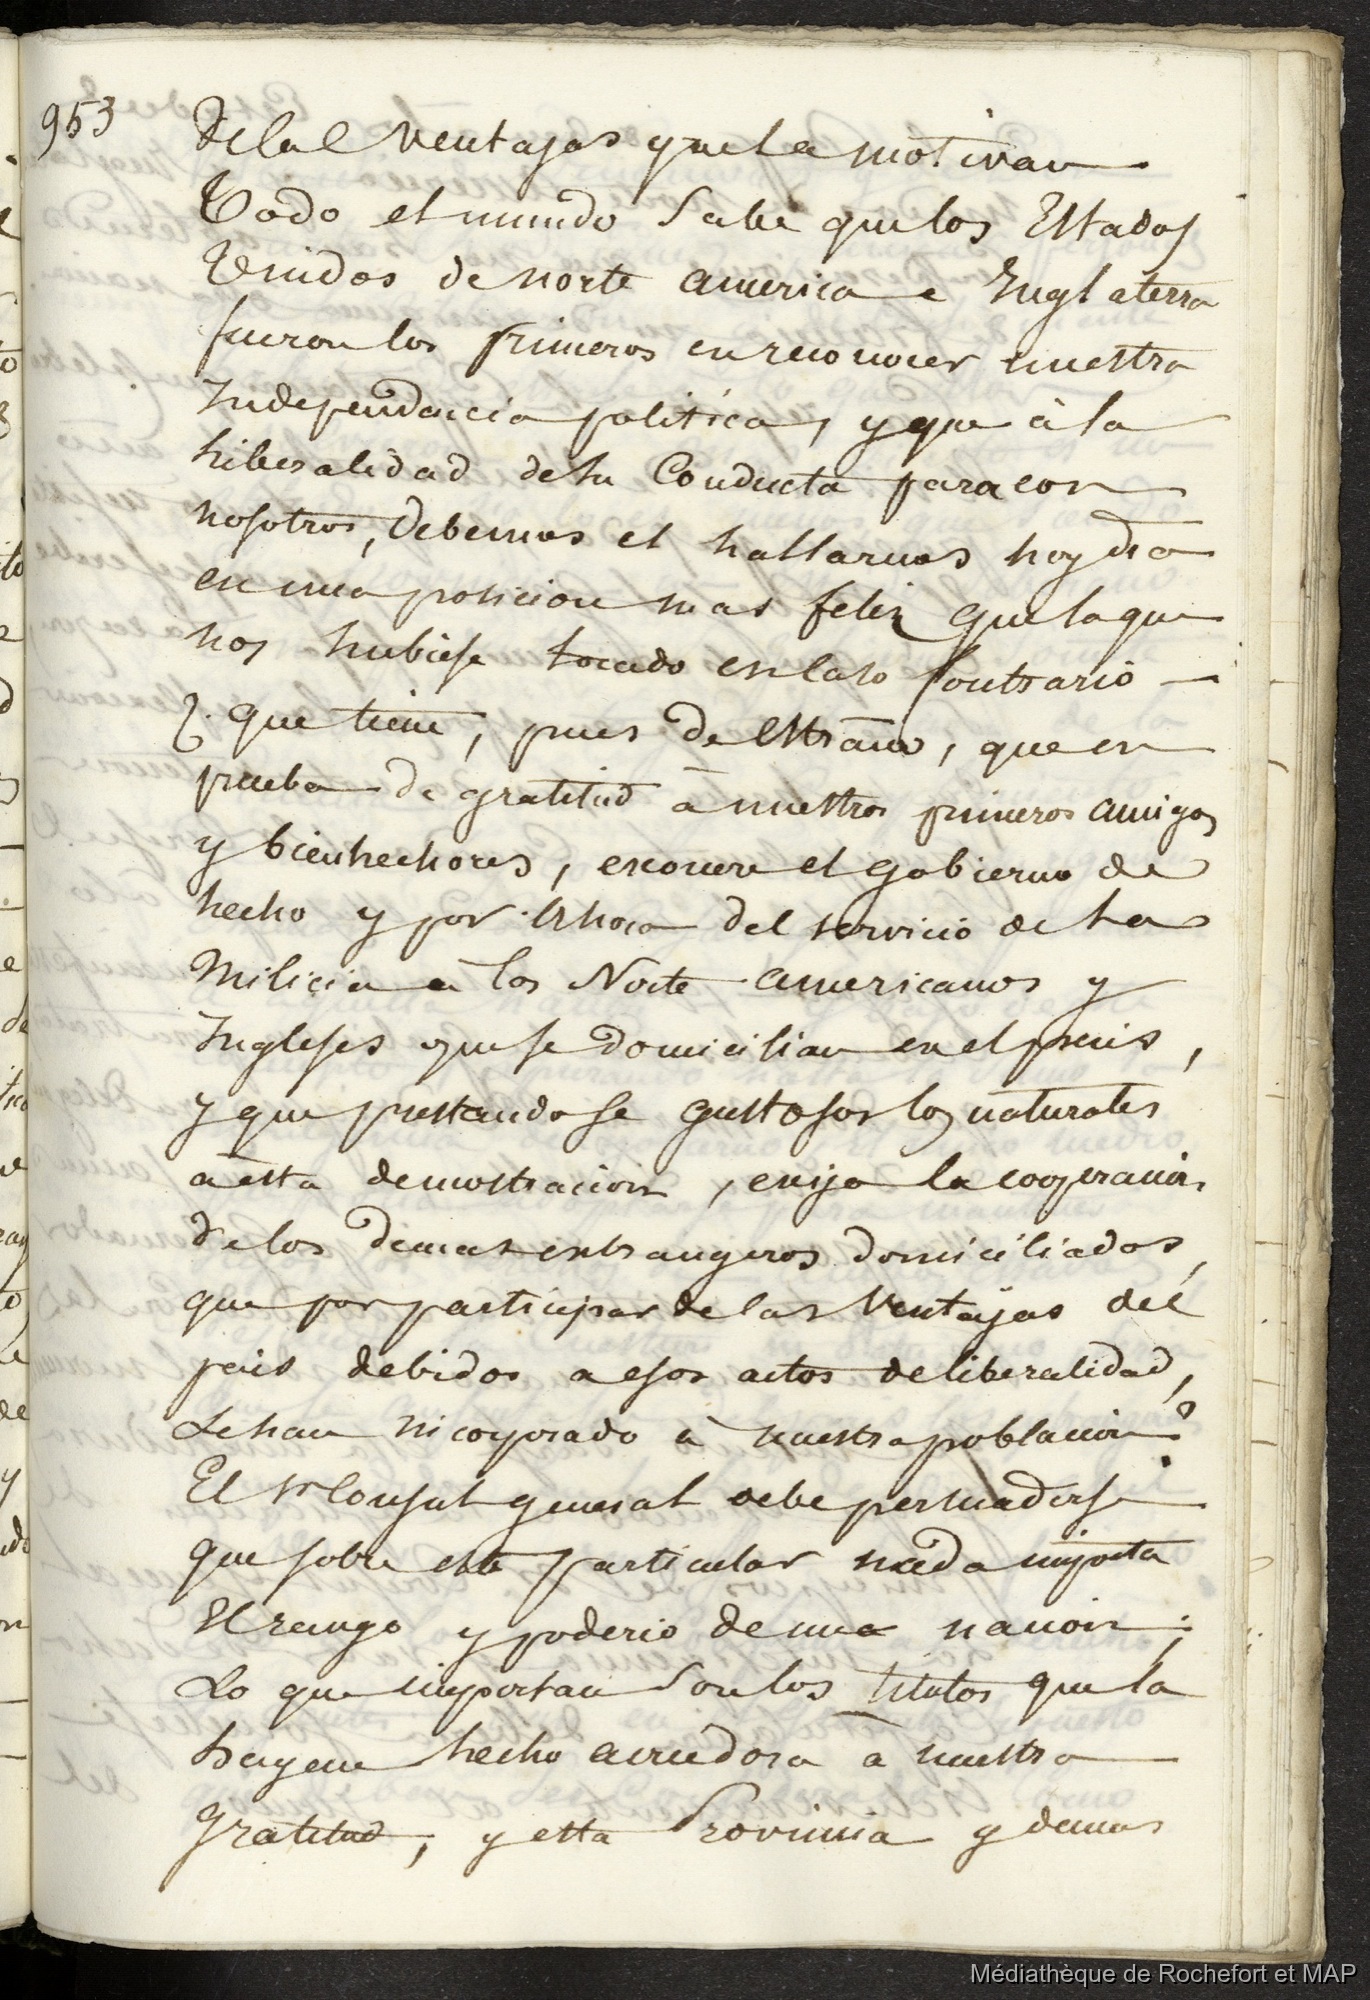 953
de las ventajas que la motivan
Todo el mundo sabe que los Estados
Unidos de norte america e Inglaterra
fueron los primeros en reconocer nuestra
Independencia politica, y que à la
liberalidad de su Conducta para con
nosotros, debemos el hallarnos hoy dia
en una posicion mas feliz que la que
nos hubiese tocado en caso contrario —
¿ que tiene, pues de estraño, que en
prueba de gratitud à nuestros primeros amigos
y bienhechores, exonere el gobierno de
hecho y por ahora del servicio de la
Milicia a los Norte americanos y
Ingleses que se domicilian en el pais,
y que prestandose gustosos los naturales
a esta demostracion, exija la cooperacion
de los demas extrangeros domiciliados,
que por participar de las ventajas del
pais debidos a esos actos de liberalidad,
se han incoyorado à nuestra poblacion?
El Sr Consul general debe persuadirse
que sobre este particular nada importa
El rango y poderio de una nacion;
Lo que importan son los titulos que la
hayan hecho acreedora à nuestra
gratitud, y esta Provincia y demas
Médiathèque de Rochefort et MAP